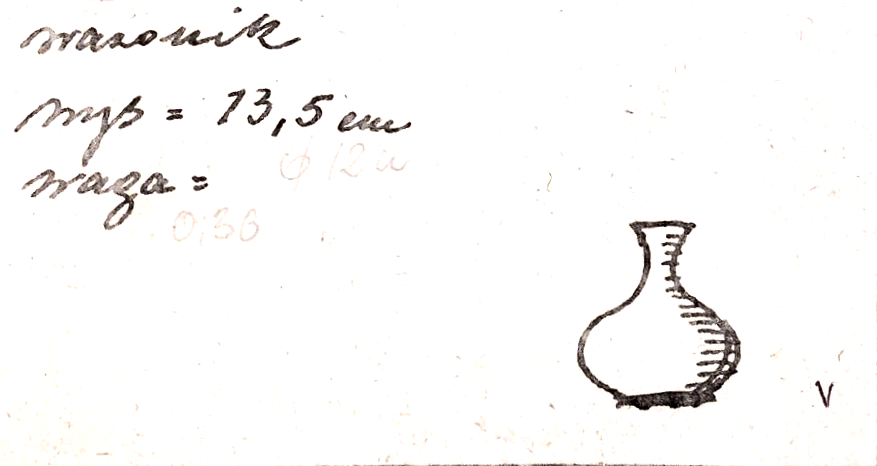 wazonik
wys = 13,5 cm
φ 12 u
waga =
0,36
V